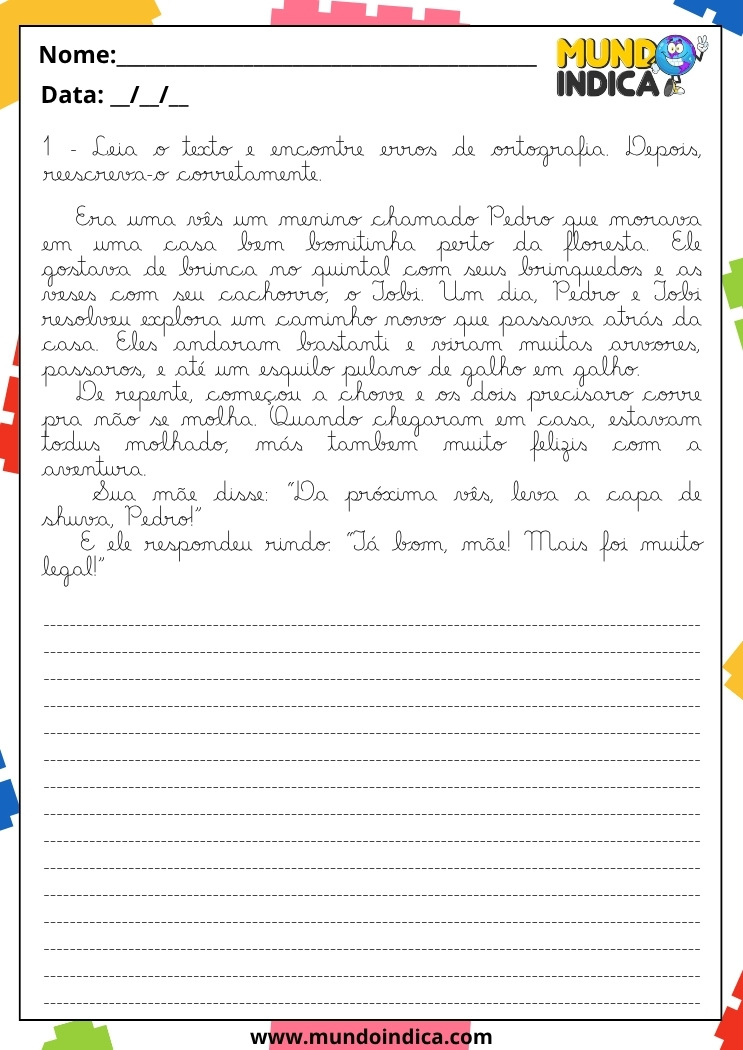 Nome:___________________________________
Data: __/__/__
MUNDO
INDICA
1 - Leia o texto e encontre erros de ortografia. Depois,
reescreva-o corretamente.
Era uma vês um menino chamado Pedro que morava
em uma casa bem bonitinha perto da floresta. Ele
gostava de brinca no quintal com seus brinquedos e as
veses com seu cachorro, o Tobi. Um dia, Pedro e Tobi
resolveu explora um caminho novo que passava atrás da
casa. Eles andaram bastanti e viram muitas arvores,
passaros, e até um esquilo pulano de galho em galho.
De repente, começou a chove e os dois precisaro corre
pra não se molha. Quando chegaram em casa, estavam
todus molhado, más tambem muito felizis com a
aventura.
Sua mãe disse: “Da próxima vês, leva a capa de
shuva, Pedro!”
E ele respondeu rindo: “Tá bom, mãe! Mais foi muito
legal!”
www.mundoindica.com